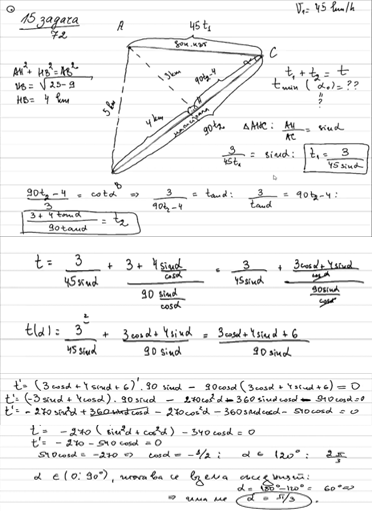 15 задача
72
V₁ = 45 km/h
A
45t₁
C
3 km
5 km
90t₂-4
4 km
H
90t₂
B
AH² + HB² = AB²
HB = √25-9
HB = 4 km
t₁ + t₂ = t
t min (α₀) = ??
ΔAHC: AH/AC = sinα
3/45t₁ = sinα: t₁ = 3/45sinα
90t₂-4/3 = cotα ⇒ 3/90t₂-4 = tanα: 3/tanα = 90t₂-4:
3+4tanα/90tanα = t₂
t = 3/45sinα + 3+4sinα/cosα/90sinα/cosα = 3/45sinα + 3cosα+4sinα/cosα/90sinα/cosα
t(α) = 3/45sinα + 3cosα+4sinα/90sinα = 3cosα+4sinα+6/90sinα
t' = (3cosα+4sinα+6)'.90sinα - 90cosα(3cosα+4sinα+6) = 0
t' = (-3sinα+4cosα).90sinα - 270cos²α - 360sinαcosα - 540cosα=0
t' = -270sin²α+360sinαcosα-270cos²α-360sinαcosα-540cosα = 0
t' = -270(sin²α+cos²α)-540cosα = 0
t' = -270-540cosα = 0
540cosα = -270 ⇒ cosα = -1/2; α ∈ 120°; 2π/3
α ∈ (0; 90°),
α = 180°-120° = 60° ⇒
⇒ α = π/3.